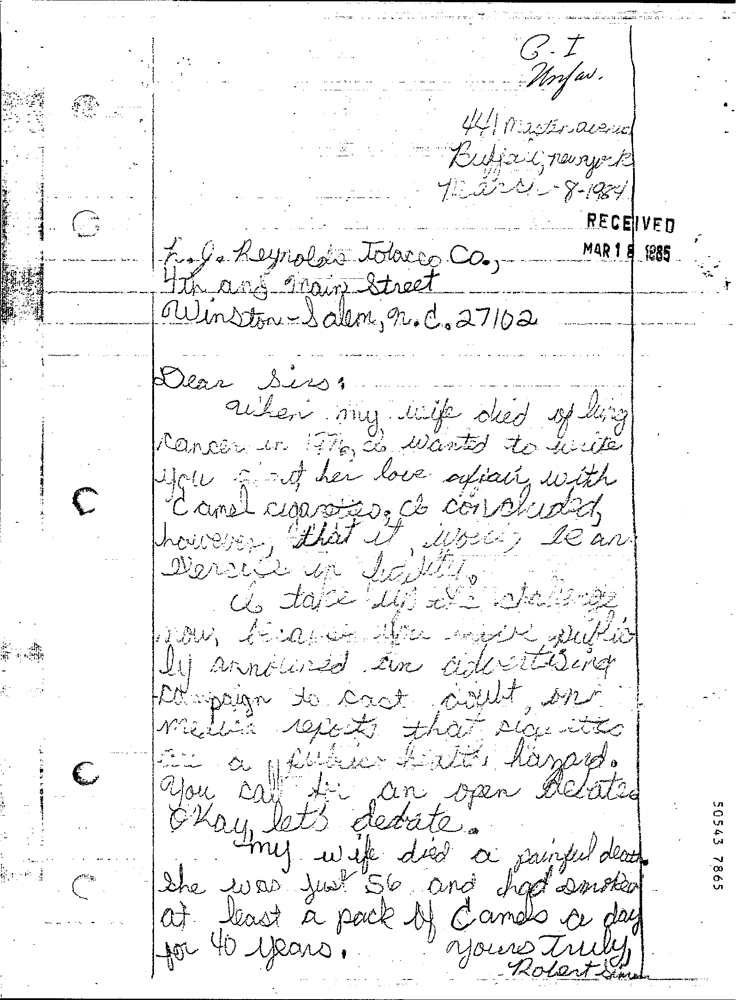 C. I
Unfav.
441 Masten avenue
Buffalo, new york
March-8-1984
RECEIVED
MAR 18 1985
R. J. Reynolds Tobacco Co.,
4th and Main Street
Winston-Salem, N.C. 27102
Dear Sirs:
When my wife died of lung
cancer in 1976, I wanted to write
you about her love affair with
Camel cigarettes. I concluded,
however, that it would be an
exercise in futility.
I take up the challenge
now, because you have public
ly announced an advertising
campaign to cast doubt on
reports that cigarettes
are a public health hazard.
You call for an open debate.
Okay, let's debate.
My wife died a painful death.
She was just 56 and had smoked
at least a pack of Camels a day
for 40 years.
Yours Truly,
Robert
50543 7865